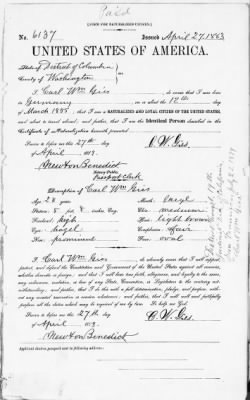 Paid
[FORM FOR NATURALIZED CITIZEN.]
No. 6137 Issued April 27, 1883
UNITED STATES OF AMERICA.
District of Columbia
County of Washington
I Carl Wm Gies, do swear that I was born
in Germany, on or about the 12th day
of March 1855; that I am a NATURALIZED AND LOYAL CITIZEN OF THE UNITED STATES,
and about to travel abroad; and further, that I am the identical Person described in the
Certificate of Naturalization herewith presented.
Sworn to before me this 27th day
of April, 188
C. W. Gies.
Newton Benedict
Notary Public.
Description of Carl Wm Gies
Age: 28 years. Mouth: large
Stature: 5 feet 8 inches Eng. Chin: medium
Forehead: high Hair: light brown
Eyes: hazel Complexion: fair
Nose: prominent Face: oval
I Carl Wm Gies, do solemnly swear that I will support,
protect, and defend the Constitution and Government of the United States against all enemies,
whether domestic or foreign; and that I will bear true faith, allegiance, and loyalty to the same,
any ordinance, resolution, or law of any State, Convention, or Legislature to the contrary notwithstanding;
and further, that I do this with a full determination, pledge, and purpose, without
any mental reservation or evasion whatsoever; and further, that I will well and faithfully
perform all the duties which may be required of me by law. So help me God.
Sworn to before me this 27 day
of April, 188
C. W. Gies.
Newton Benedict
Applicant desires passport sent to following address: